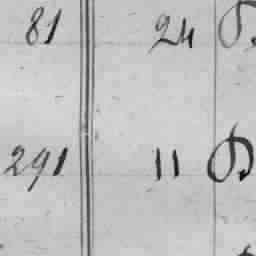 81 24
291 11 D